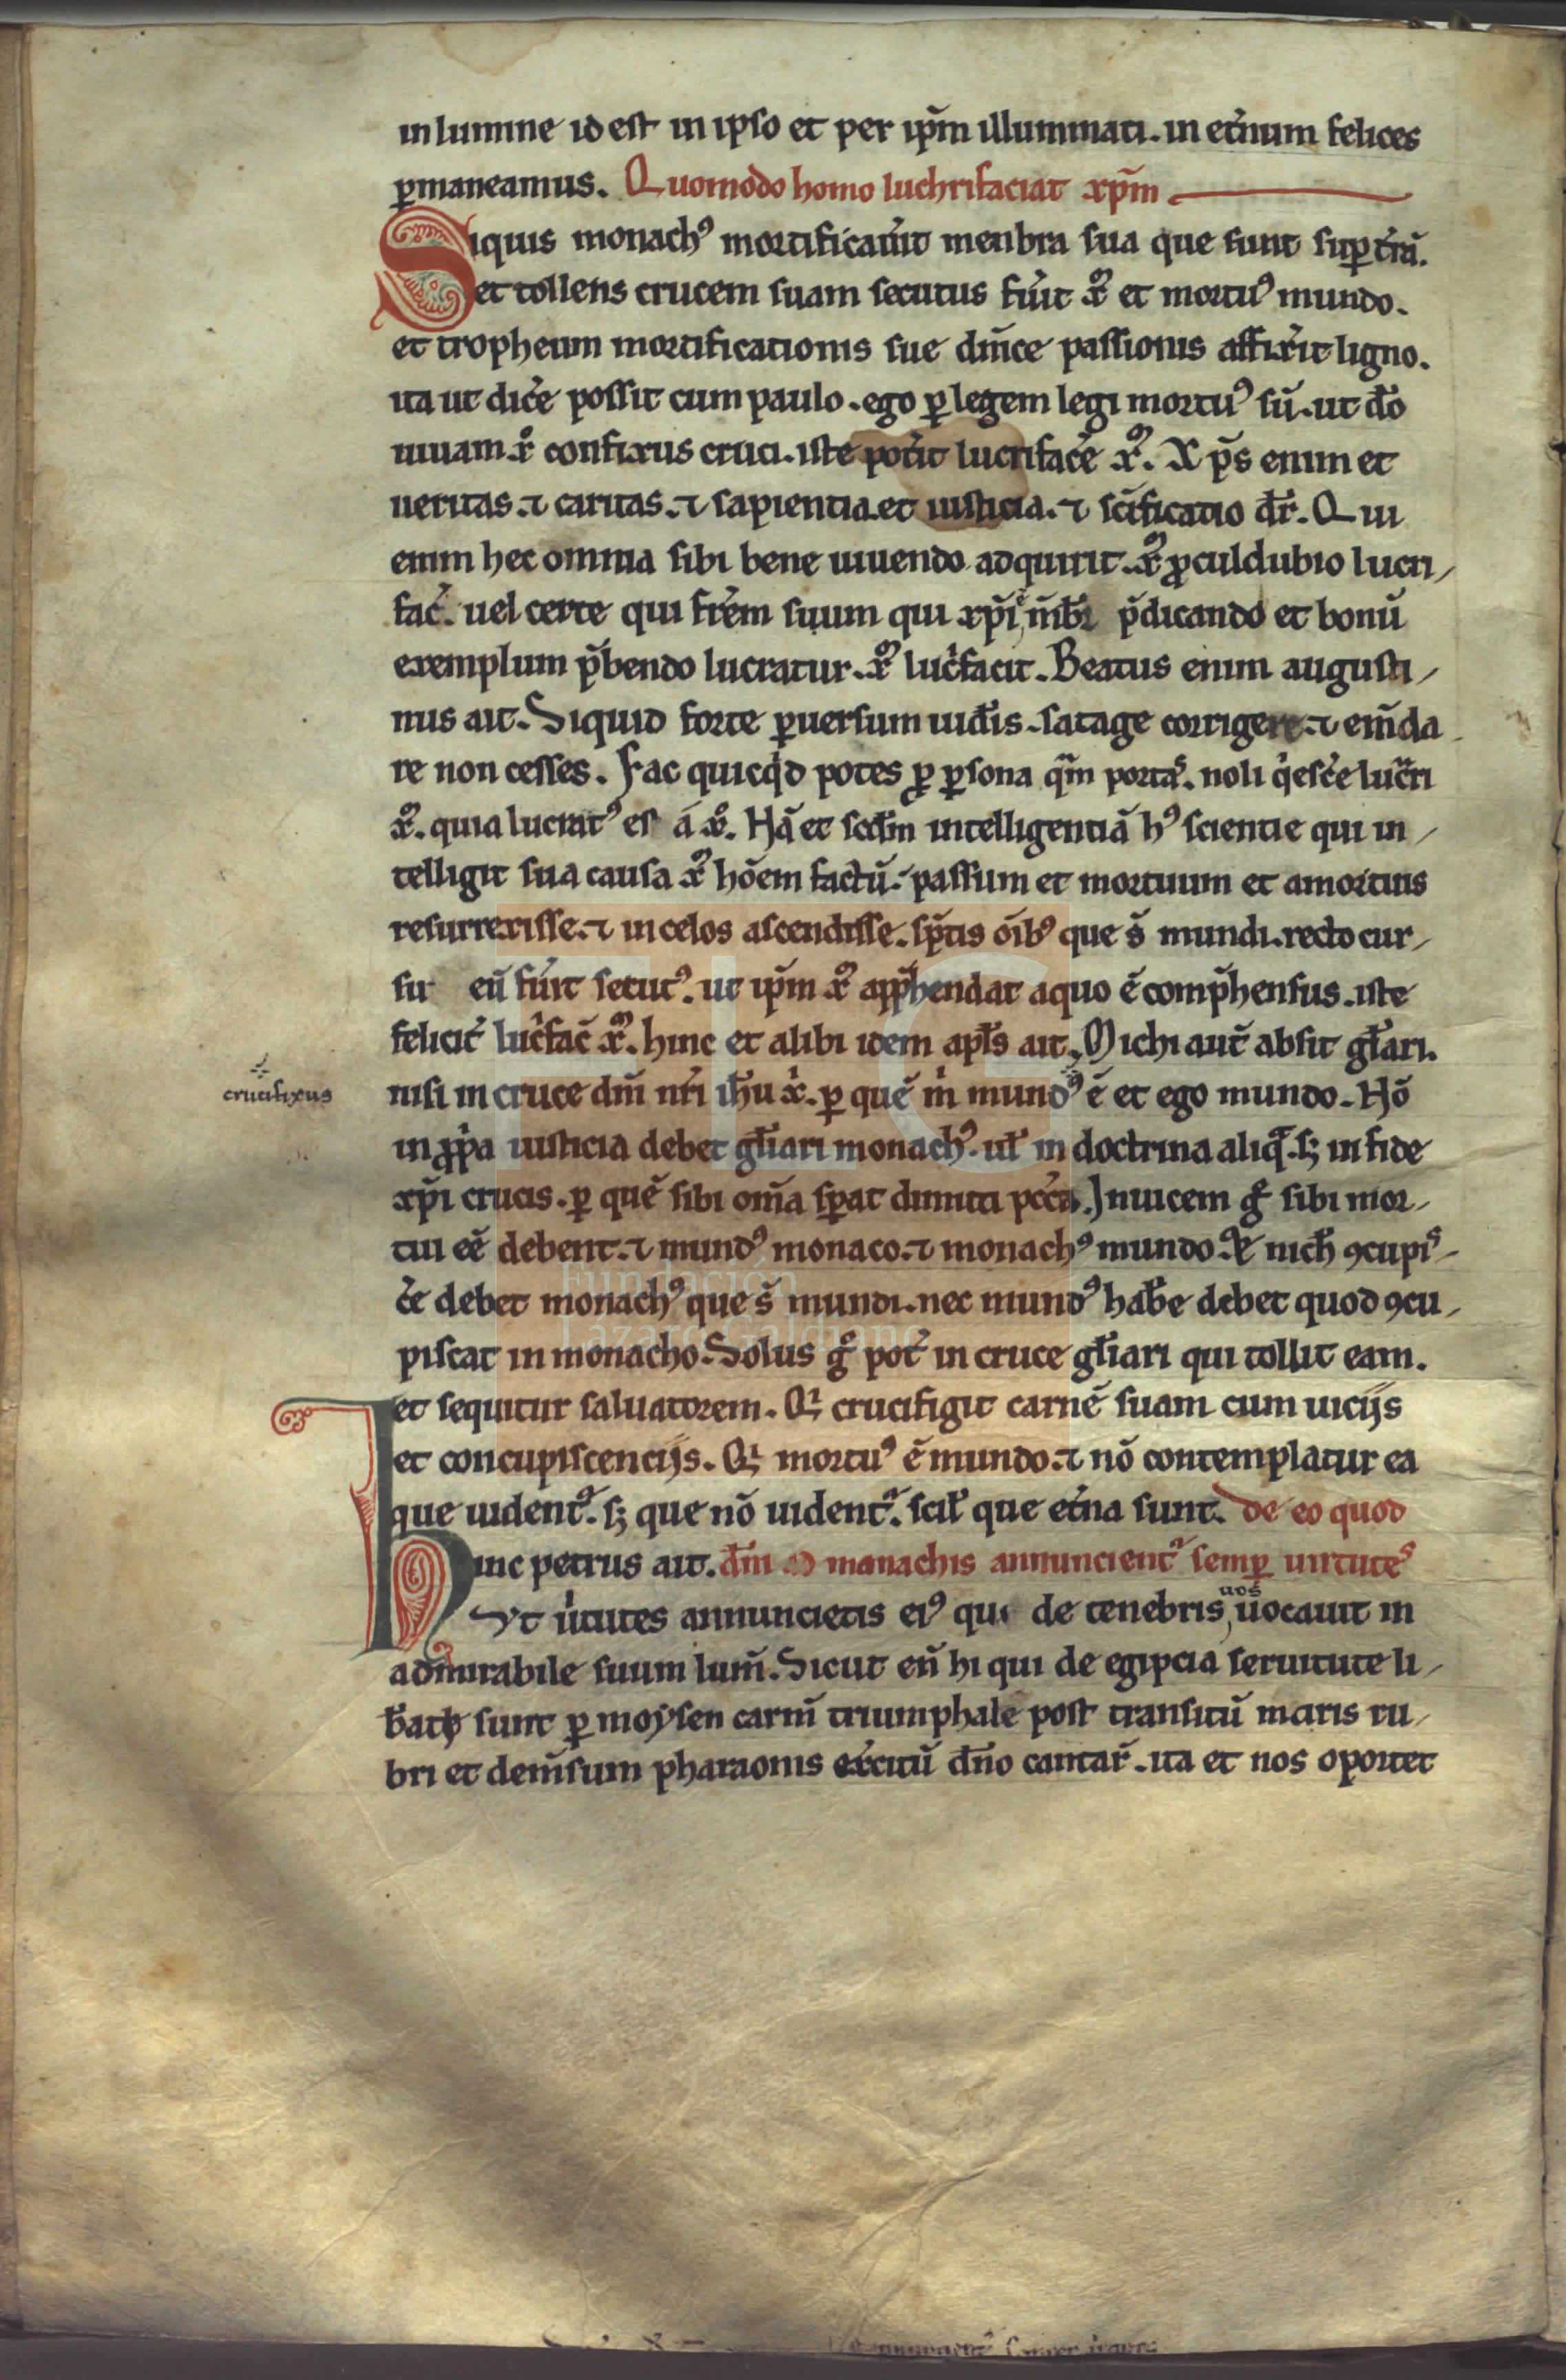 in lumine id est in ipso et per ip̃m illuminati. in et̾num felices
ꝑmaneamus. Quomodo homo luchrifaciat xp̃m
Siquis monachꝰ mortificau̾it menbra sua que sunt suꝑ t̾rã.
et tollens crucem suam secutus fu̾it xᷝ et mortuꝰ mundo.
et tropheum mortificationis sue dñice passionis affix̾it ligno.
ita ut dic̾e possit cum paulo. ego ꝑ legem legi mortuꝰ sũ. ut đo
uiuam xͦ confixus cruci. iste pot̾it lucrifac̾e xᷝ. Xp̃s enim et
ueritas. ⁊ caritas. ⁊ sapientia. et iusticia. ⁊ sc̃ificatio dr̃. Qui
enim hec omnia sibi bene uiuendo adquirit. xᷝ ꝓculdubio lucri/
fac̾. uel certe qui fr̃em suum qui xp̃i ẽ mb̾ p̃dicando et bonũ
exemplum p̃bendo lucratur. xᷝ luc̾facit. Beatus enim augusti/
nus ait. Siquid forte ꝑuersum uid̾is. satage corrigere. ⁊ em̃da
re non cesses. Fac quicqͥd potes ꝓ ꝑsona qͣm portaˢ. noli qͥesc̾e luc̾ri
xᷝ. quia lucratꝰ es a xͦ. Hã et scđm intelligentiã hꝰ scientie qui in/
telligit sua causa xᷝ hõem factũ. passum et mortuum et amortuis
resurrexisse. ⁊ in celos ascendisse. sp̃tis oĩbꝰ que s̃ mundi. recto cur/
su eũ fu̾it secutꝰ. ut ip̃m xᷝ app̃hendat aquo ẽ comp̃hensus. iste
felicit̾ luc̾fac̃ xᷝ. hinc et alibi idem apl̃s ait. Michi aut̃ absit gl̃ari.
crucifixus
nisi in cruce dñi nr̃i ih̃u xͥ. ꝑ quẽ mͥ mundꝰ ẽ et ego mundo. Nõ
in ꝓpͥa iusticia debet gl̃iari monachꝰ. ul̃ in doctrina aliqͣ. sꝫ in fide
xp̃i crucis. ꝑ quẽ sibi om̃a sp̃at dimitti pc̃c̃a. Inuicem gͦ sibi mor/
tui eẽ debent. ⁊ mundꝰ monaco. ⁊ monachꝰ mundo. nich̃ ꝯcupiˢ/
c̾e debet monachꝰ que s̃ mundi. nec mundꝰ hab̾e debet quod ꝯcu/
piscat in monacho. Solus gͦ pot̾ in cruce gl̃iari qui tollit eam.
et sequitur saluatorem. Qͥ crucifigit carnẽ suam cum uicijs
et concupiscencijs. Qͥ mortuꝰ ẽ mundo. ⁊ nõ contemplatur ea
que uident᷑. sꝫ que nõ uident᷑. scil̃ que et̾na sunt. De eo quod
Hinc petrus ait. dñi a monachis annuncient᷑ semꝑ uirtuteˢ
Vt u̾tutes annuncietis eiꝰ qui de tenebris uos uocauit in
admirabile suum lum̃. Sicut eñ hi qui de egipcia seruitute li/
b̾ati sunt ꝑ moysen carm̃ triumphale post transitũ maris ru/
bri et dem̃sum pharaonis ex̾citũ dño cantar̃. ita et nos oportet